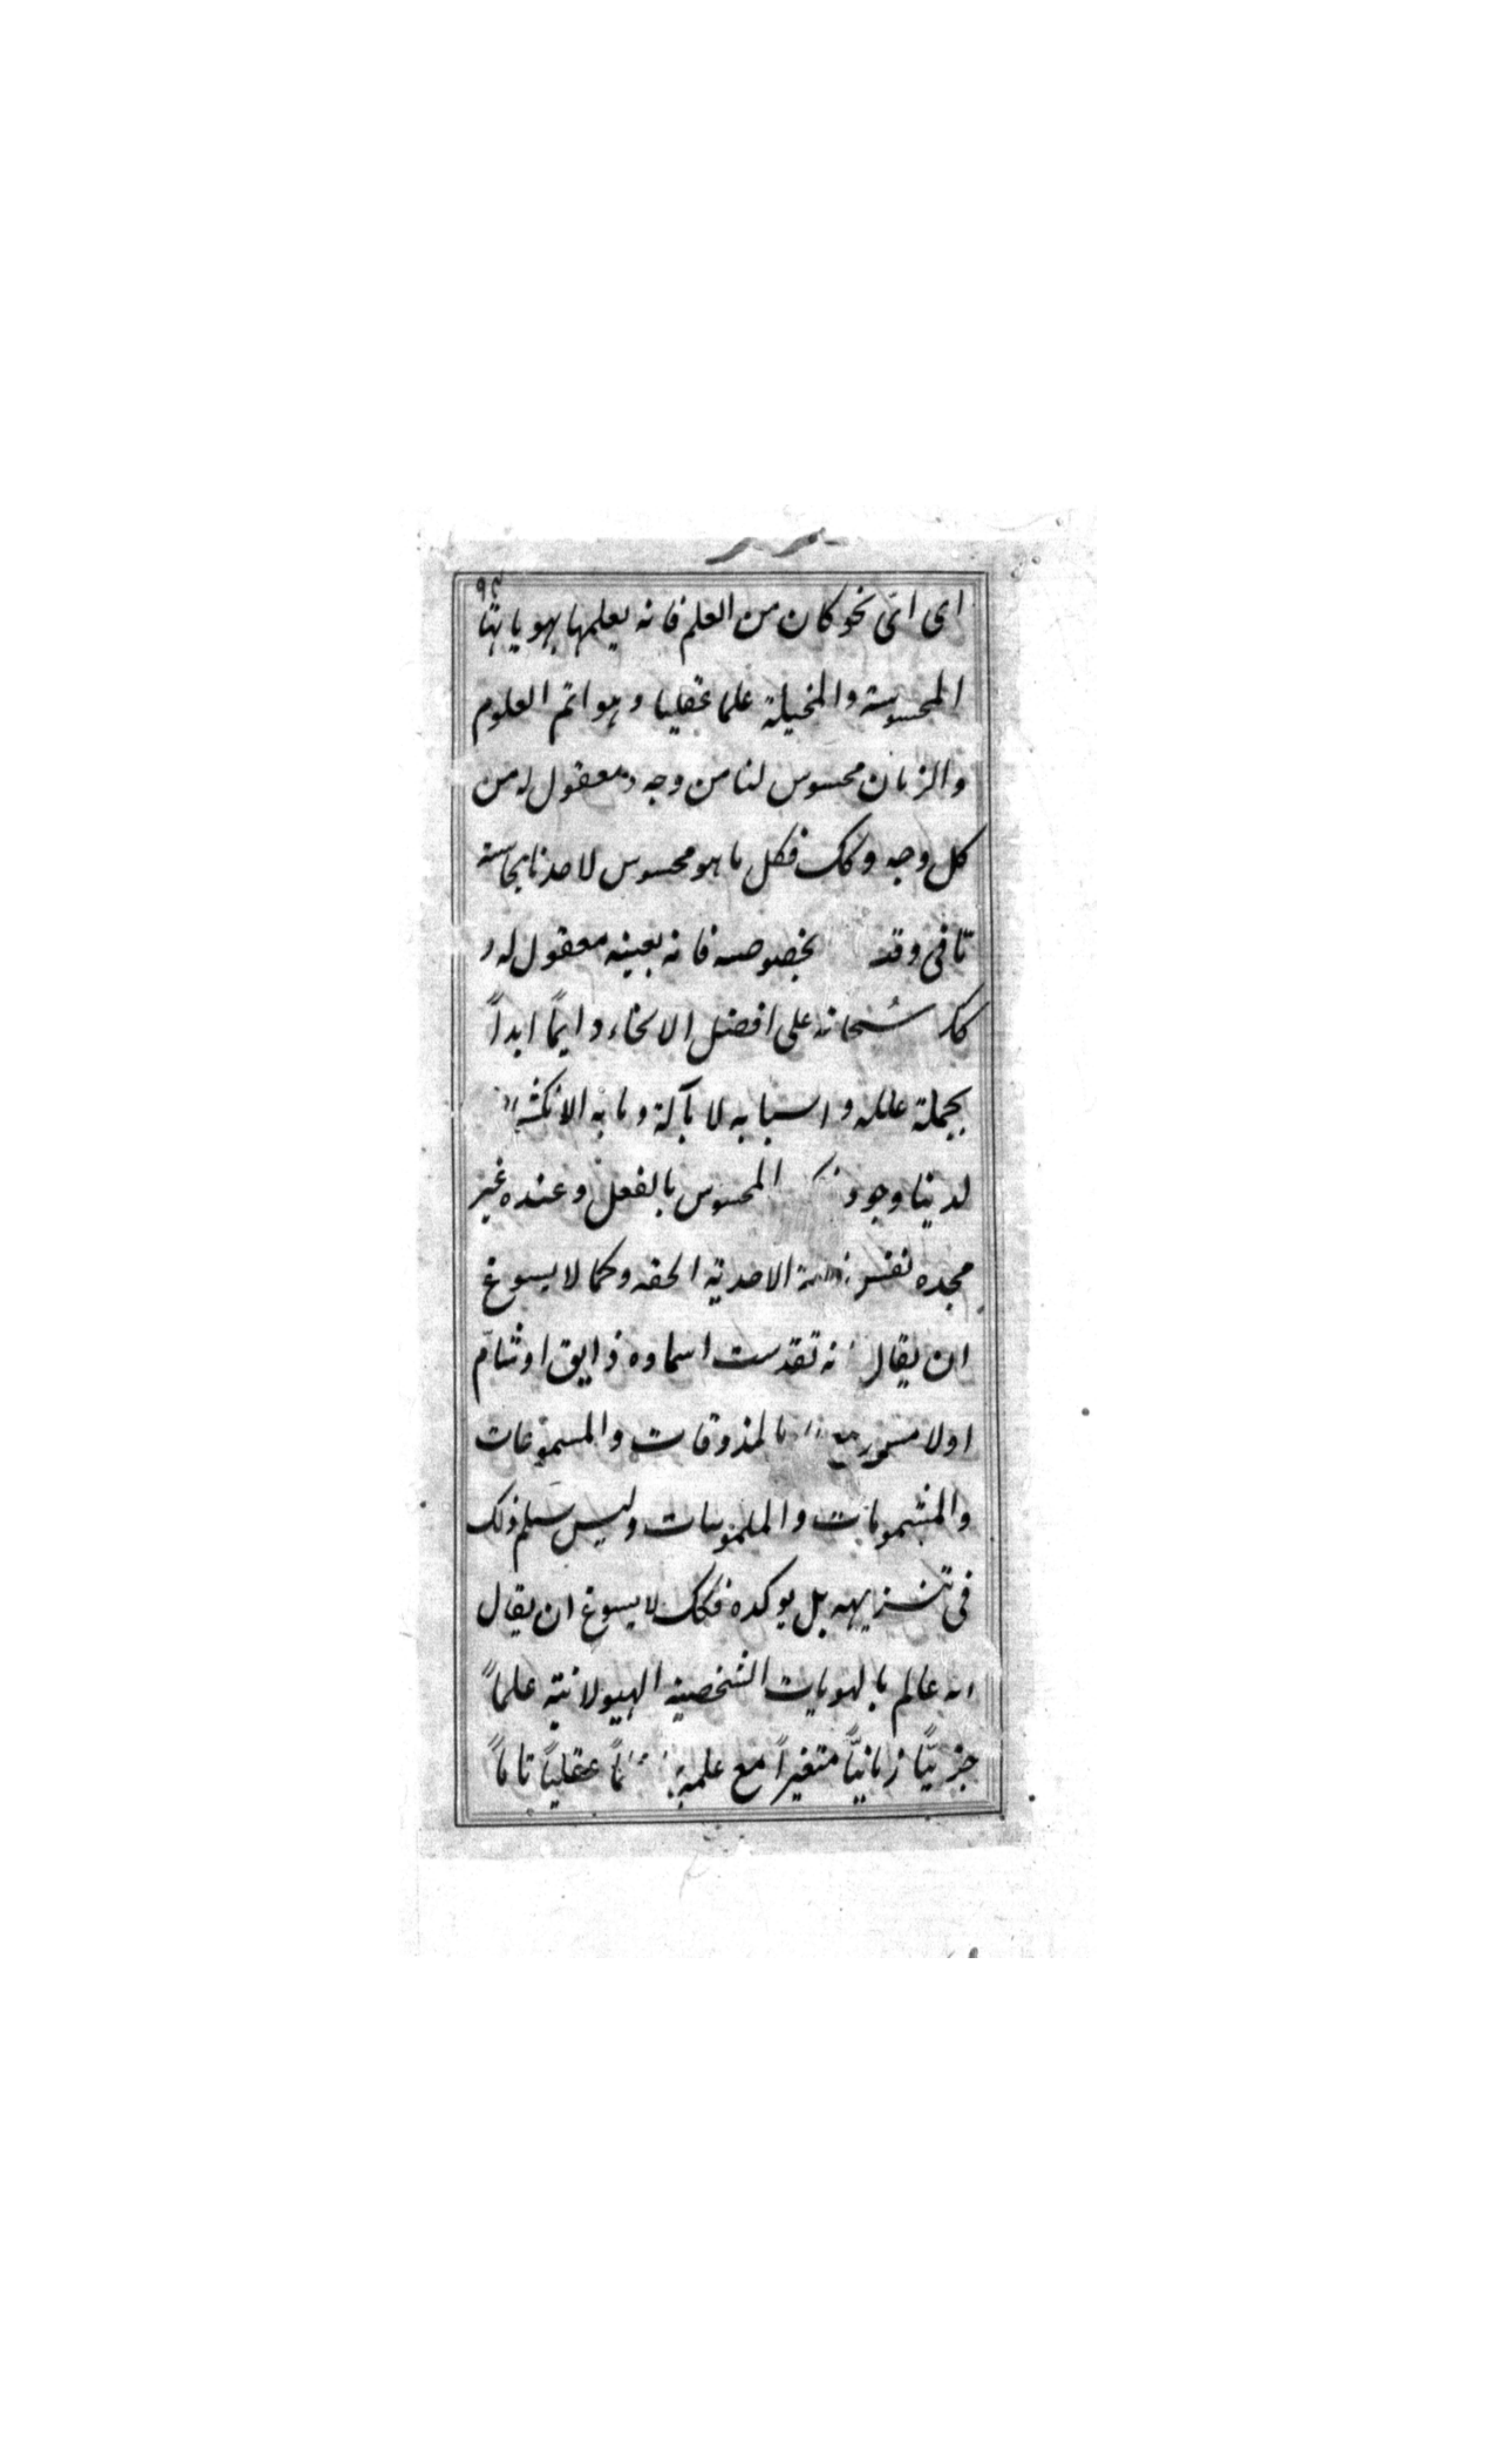 ٩٤
اى اىّ نحو كان من العلم فانه يعلمها بهوياتها
المحسوسة والمخيلة علما عقليا وهو اتم العلوم
والزمان محسوس لنا من وجه ومعقول له من
كل وجه وكك فكل ما هو محسوس لاحدنا بحاسة
ما فى وقت بخصوصه فانه بعينه معقول له
سبحانه على افضل الانحاء دايمًا ابدًا
بجملة علله واسبابه لا بآلة وما به الانكشاف
لدينا وجود المحسوس بالفعل وعنده غير
مجده نفس الاحدية الحقه وكما لا يسوغ
ان يقال انه تقدست اسماوه ذايق او شامّ
او لامس بالمذوقات والمسموعات
والمشمومات والملموسات وليس يثلم ذلك
فى تنزيهه بل يوكده فكك لا يسوغ ان يقال
انه عالم بالهويات الشخصية الهيولانية علماً
جزئيًّا زمانيًّا متغيراً مع علمه عقليًا تامًا